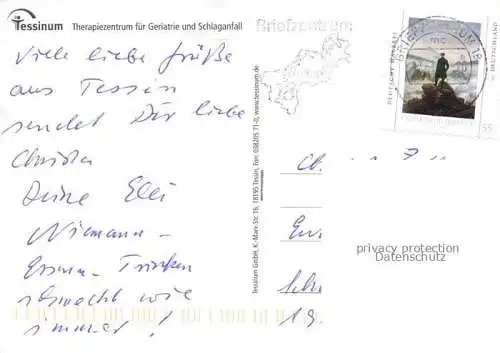 Tessinum Therapiezentrum für Geriatrie und Schlaganfall
Viele liebe Grüße
aus Tessin
sendet Dir liebe
Christa
Deine Elli
Niemann-
Essen - Trinken
schmeckt wie
immer!
Tessinum GmbH, K.-Marx-Str. 16, 18195 Tessin, Fon: 038205 71-0, www.tessinum.de
Briefzentrum
DEUTSCHLAND
55
privacy protection
Datenschutz
19